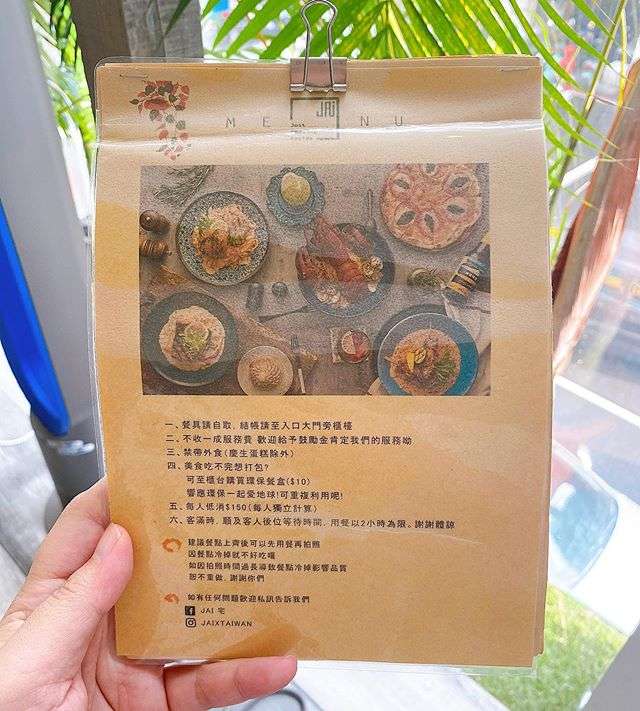 MENU
JAi
一、餐具請自取, 結帳請至入口大門旁櫃檯
二、不收一成服務費 歡迎給予鼓勵金肯定我們的服務呦
三、禁帶外食(慶生蛋糕除外)
四、美食吃不完想打包?
可至櫃台購買環保餐盒($10)
響應環保一起愛地球!可重複利用呢!
五、每人低消$150(每人獨立計算)
六、客滿時, 顧及客人後位等待時間, 用餐以2小時為限。謝謝體諒
建議餐點上齊後可以先用餐再拍照
因餐點冷掉就不好吃囉
如因拍照時間過長導致餐點冷掉影響品質
恕不重做, 謝謝你們
如有任何問題歡迎私訊告訴我們
JAI 宅
JAIXTAIWAN